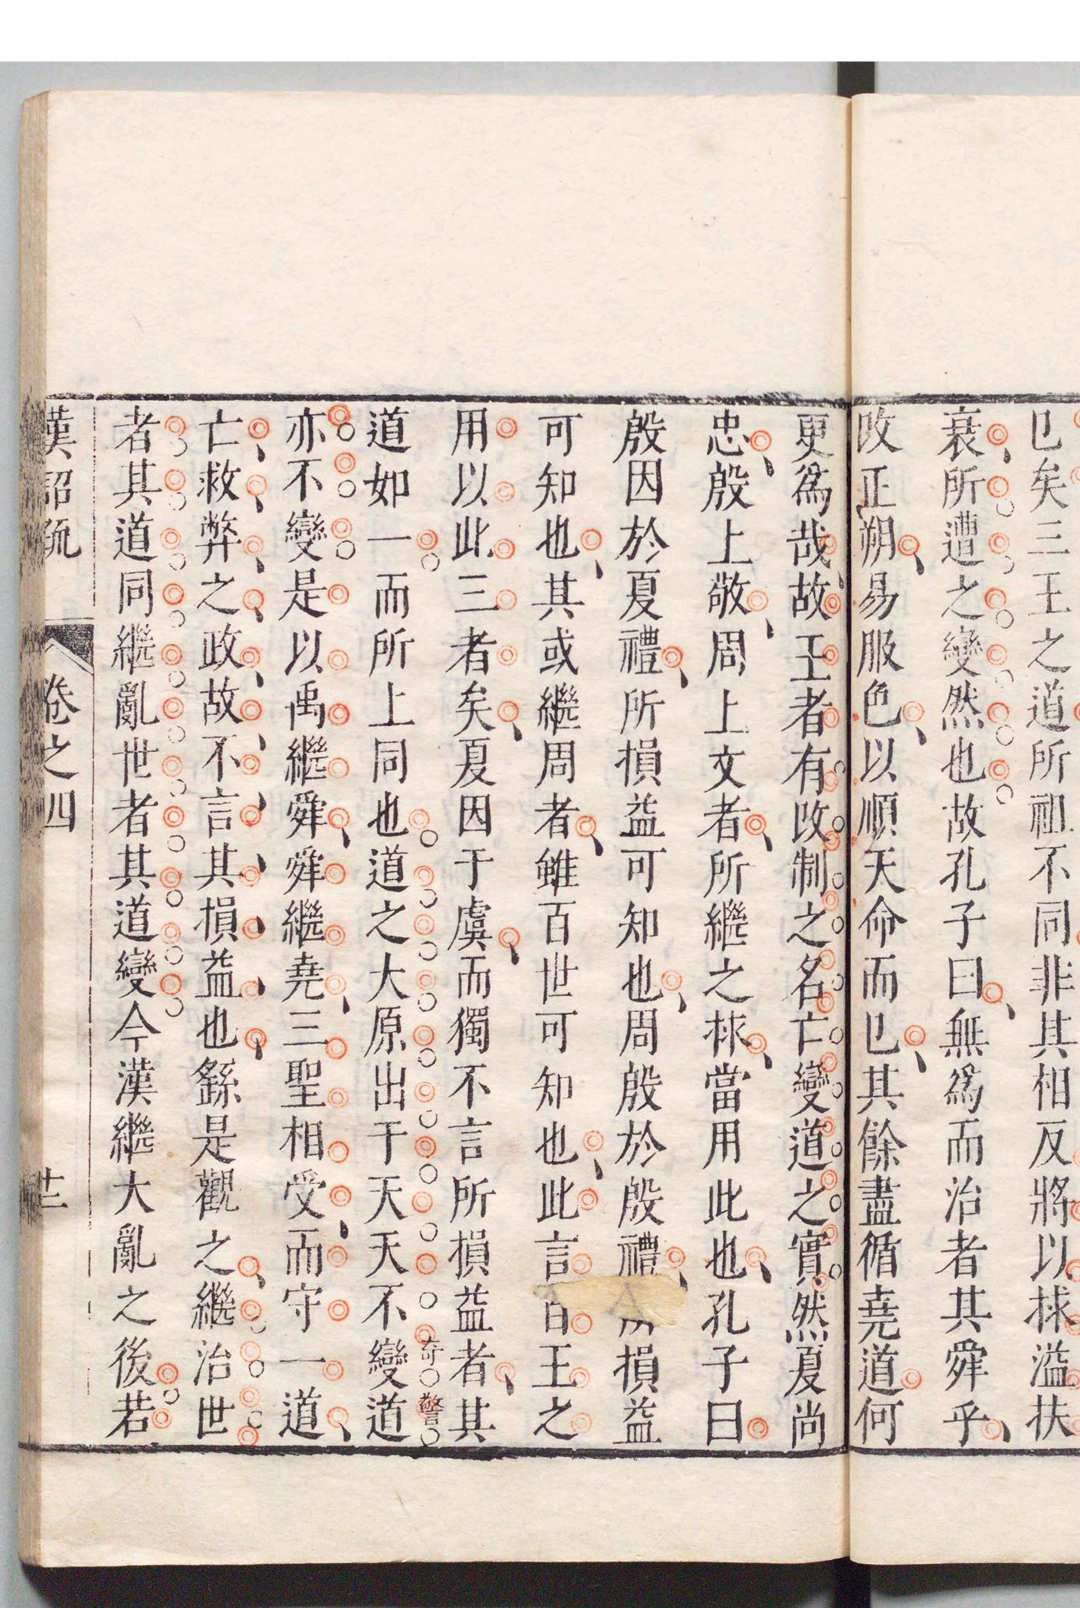 已矣三王之道所祖不同非其相反將以捄溢扶
衰所遭之變然也故孔子曰無爲而治者其舜乎
改正朔易服色以順天命而已其餘盡循堯道何
更爲哉故王者有改制之名亡變道之實然夏尚
忠殷上敬周上文者所繼之捄當用此也孔子曰
殷因於夏禮所損益可知也周殷於殷禮所損益
可知也其或繼周者雖百世可知也此言百王之
用以此三者矣夏因于虞而獨不言所損益者其
道如一而所上同也道之大原出于天天不變道
奇警
亦不變是以禹繼舜舜繼堯三聖相受而守一道
亡救弊之政故不言其損益也繇是觀之繼治世
者其道同繼亂世者其道變今漢繼大亂之後若
漢詔疏
卷之四
廿